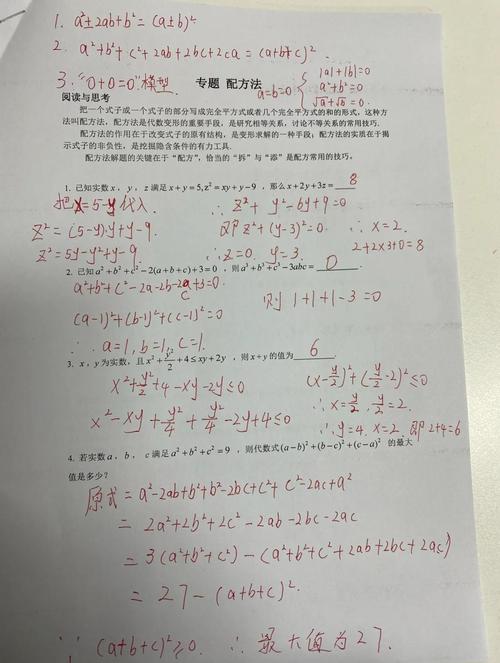 1. a²±2ab+b²=(a±b)².
2. a²+b²+c²+2ab+2bc+2ca=(a+b+c)².
3. "0+0=0"模型
a=b=0 { |a|+|b|=0
a²+b²=0
√a+√b=0
专题 配方法
阅读与思考
把一个式子或一个式子的部分写成完全平方式或者几个完全平方式的和的形式，这种方
法叫配方法，配方法是代数变形的重要手段，是研究相等关系，讨论不等关系的常用技巧.
配方法的作用在于改变式子的原有结构，是变形求解的一种手段；配方法的实质在于揭
示式子的非负性，是挖掘隐含条件的有力工具.
配方法解题的关键在于“配方”，恰当的“拆”与“添”是配方常用的技巧。
1. 已知实数 x，y，z 满足 x+y=5,z²=xy+y-9，那么 x+2y+3z= 8
把x=5-y代入.
z²=(5-y)·y+y-9.
z²=5y-y²+y-9.
∴z²+y²-6y+9=0
即z²+(y-3)²=0.
∴z=0. y=3.
∴x=2.
2+2×3+0=8
2. 已知 a²+b²+c²-2(a+b+c)+3=0，则 a³+b³+c³-3abc= 0.
a²+b²+c²-2a-2b-2c+3=0.
(a-1)²+(b-1)²+(c-1)²=0
∴a=1,b=1,c=1.
则 1+1+1-3=0
3. x，y 为实数，且 x²+y²/2+4≤xy+2y，则 x+y 的值为 6
x²+y²/2+4-xy-2y≤0
x²-xy+y²/4+y²/4-2y+4≤0
(x-y/2)²+(y/2-2)²≤0
∴x=y/2, y/2=2.
∴y=4, x=2. 即2+4=6
4. 若实数 a，b，c 满足 a²+b²+c²=9，则代数式 (a-b)²+(b-c)²+(c-a)² 的最大
值是多少?
原式=a²-2ab+b²+b²-2bc+c²+c²-2ac+a²
=2a²+2b²+2c²-2ab-2bc-2ac
=3(a²+b²+c²)-(a²+b²+c²+2ab+2bc+2ac)
=27-(a+b+c)².
∵(a+b+c)²≥0. ∴最大值为27.